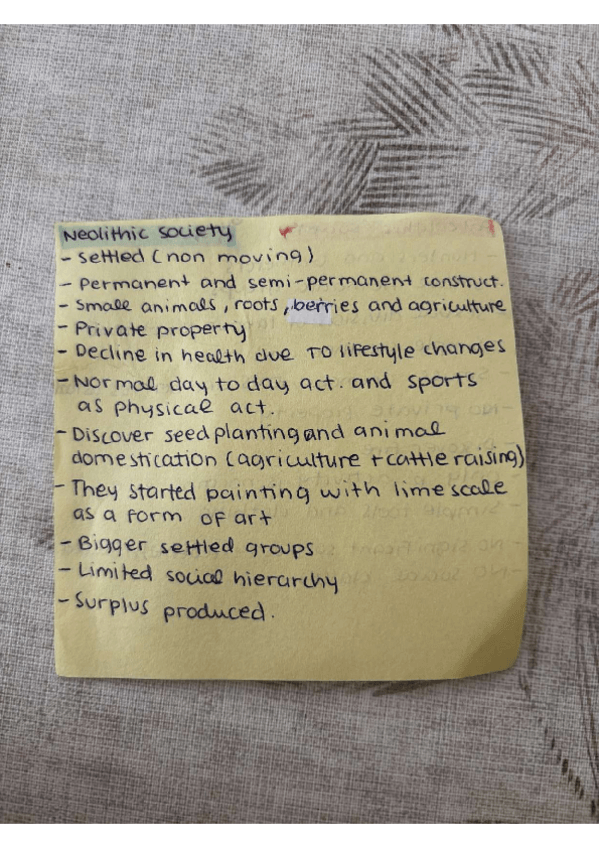 Neolithic society
- Settled (non moving)
- Permanent and semi-permanent construct.
- Small animals, roots, berries and agriculture
- Private property
- Decline in health due to lifestyle changes
- Normal day to day act. and sports
as physical act.
- Discover seed planting and animal
domestication (agriculture + cattle raising)
- They started painting with lime scale
as a form of art
- Bigger settled groups
- Limited social hierarchy
- Surplus produced.